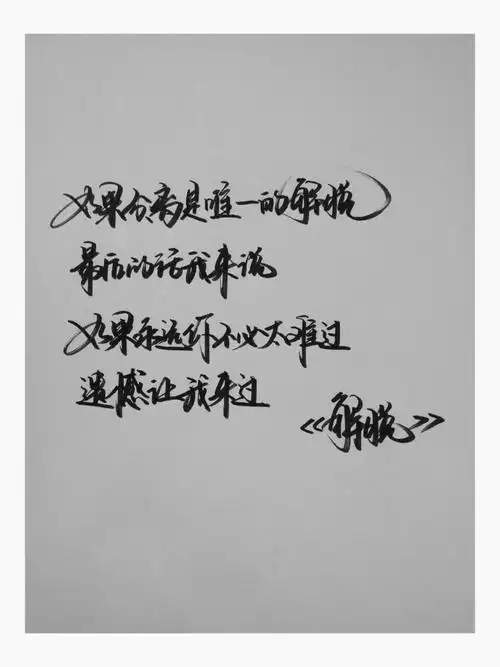 如果分离是唯一的解脱
最后的话我来说
如果永远你不必太难过
遗憾让我来过
《解脱》